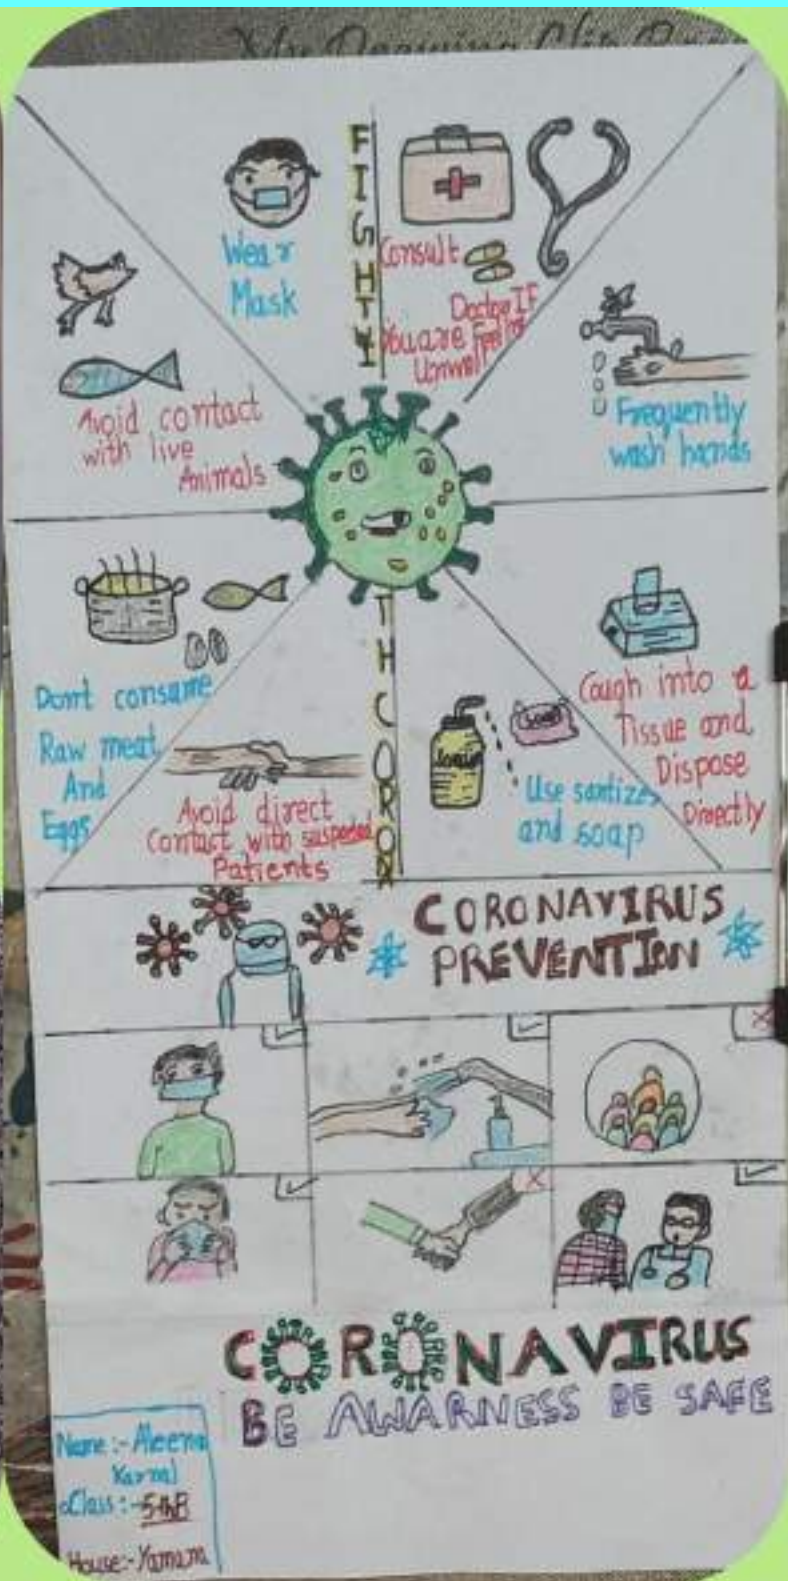 My Drawing Clip Board
FIGHT WITH CORONA
Wear
Mask
Consult
Doctor If
You are Feeling
Unwell
Avoid contact
with live
Animals
Frequently
wash hands
Dont consume
Raw meat
And
Eggs
Avoid direct
Contact with suspected
Patients
Use santizer
and soap
Soap
Cough into a
Tissue and
Dispose
Directly
CORONAVIRUS
PREVENTION
CORONAVIRUS
BE AWARNESS BE SAFE
Name:- Aleena
Kamal
Class:- 5thB
House:- Yamuna